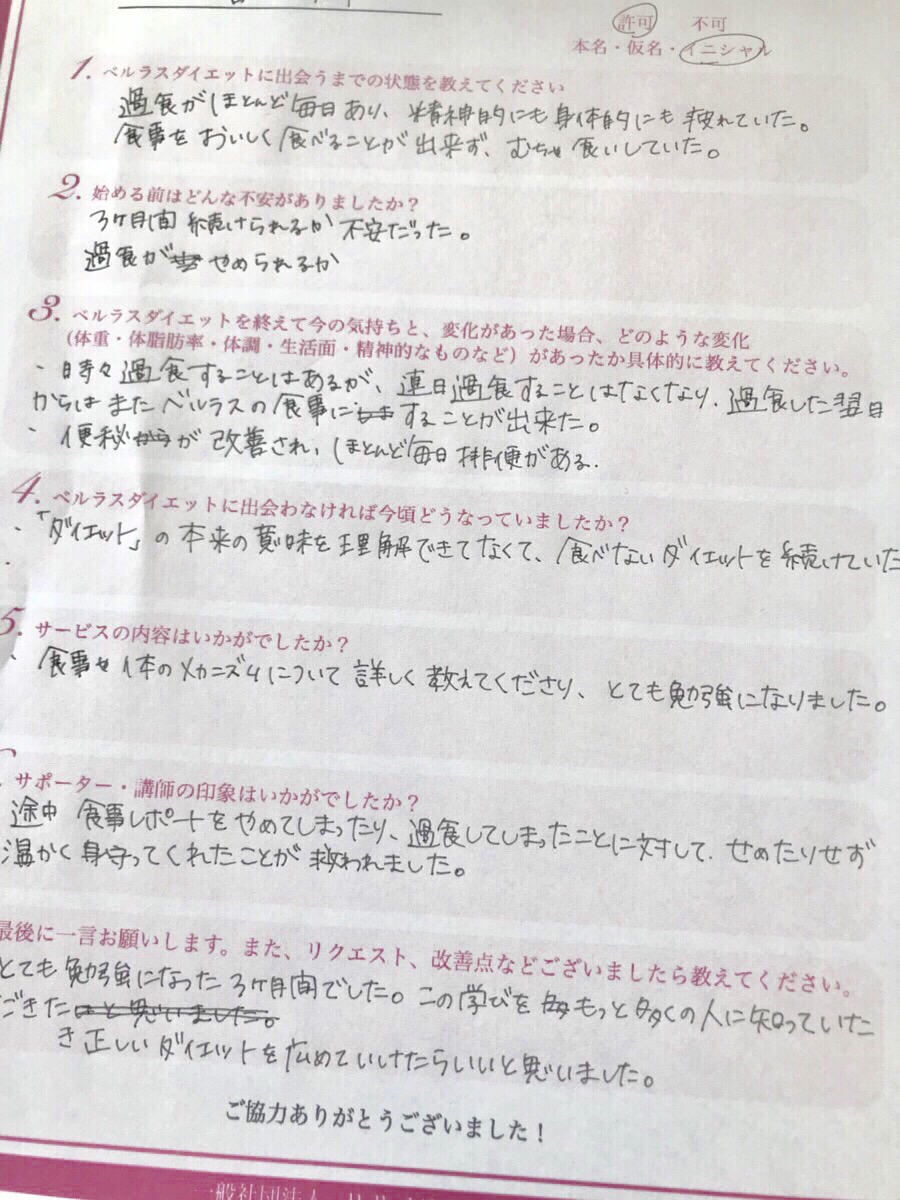 許可 不可
本名・仮名・イニシャル
1. ベルラスダイエットに出会うまでの状態を教えてください
過食がほとんど毎日あり、精神的にも身体的にも疲れていた。
食事をおいしく食べることが出来ず、むちゃ食いしていた。
2. 始める前はどんな不安がありましたか？
3ヶ月間続けられるか不安だった。
過食がやめられるか
3. ベルラスダイエットを終えて今の気持ちと、変化があった場合、どのような変化
(体重・体脂肪率・体調・生活面・精神的なものなど）があったか具体的に教えてください。
・時々過食することはあるが、連日過食することはなくなり、過食した翌日
からはまたベルラスの食事にすることが出来た。
・便秘が改善され、ほとんど毎日排便がある.
4. ベルラスダイエットに出会わなければ今頃どうなっていましたか？
・「ダイエット」の本来の意味を理解できてなくて、食べないダイエットを続けていた
5. サービスの内容はいかがでしたか？
、食事や体のメカニズムについて詳しく教えてくださり、とても勉強になりました。
サポーター・講師の印象はいかがでしたか？
途中食事レポートをやめてしまったり、過食してしまったことに対して、せめたりせず
温かく身守ってくれたことが救われました。
最後に一言お願いします。また、リクエスト、改善点などございましたら教えてください。
とても勉強になった3ヶ月間でした。この学びをもっと多くの人に知っていた
ごきた
き正しいダイエットを広めていけたらいいと思いました。
ご協力ありがとうございました！
一般社団法人